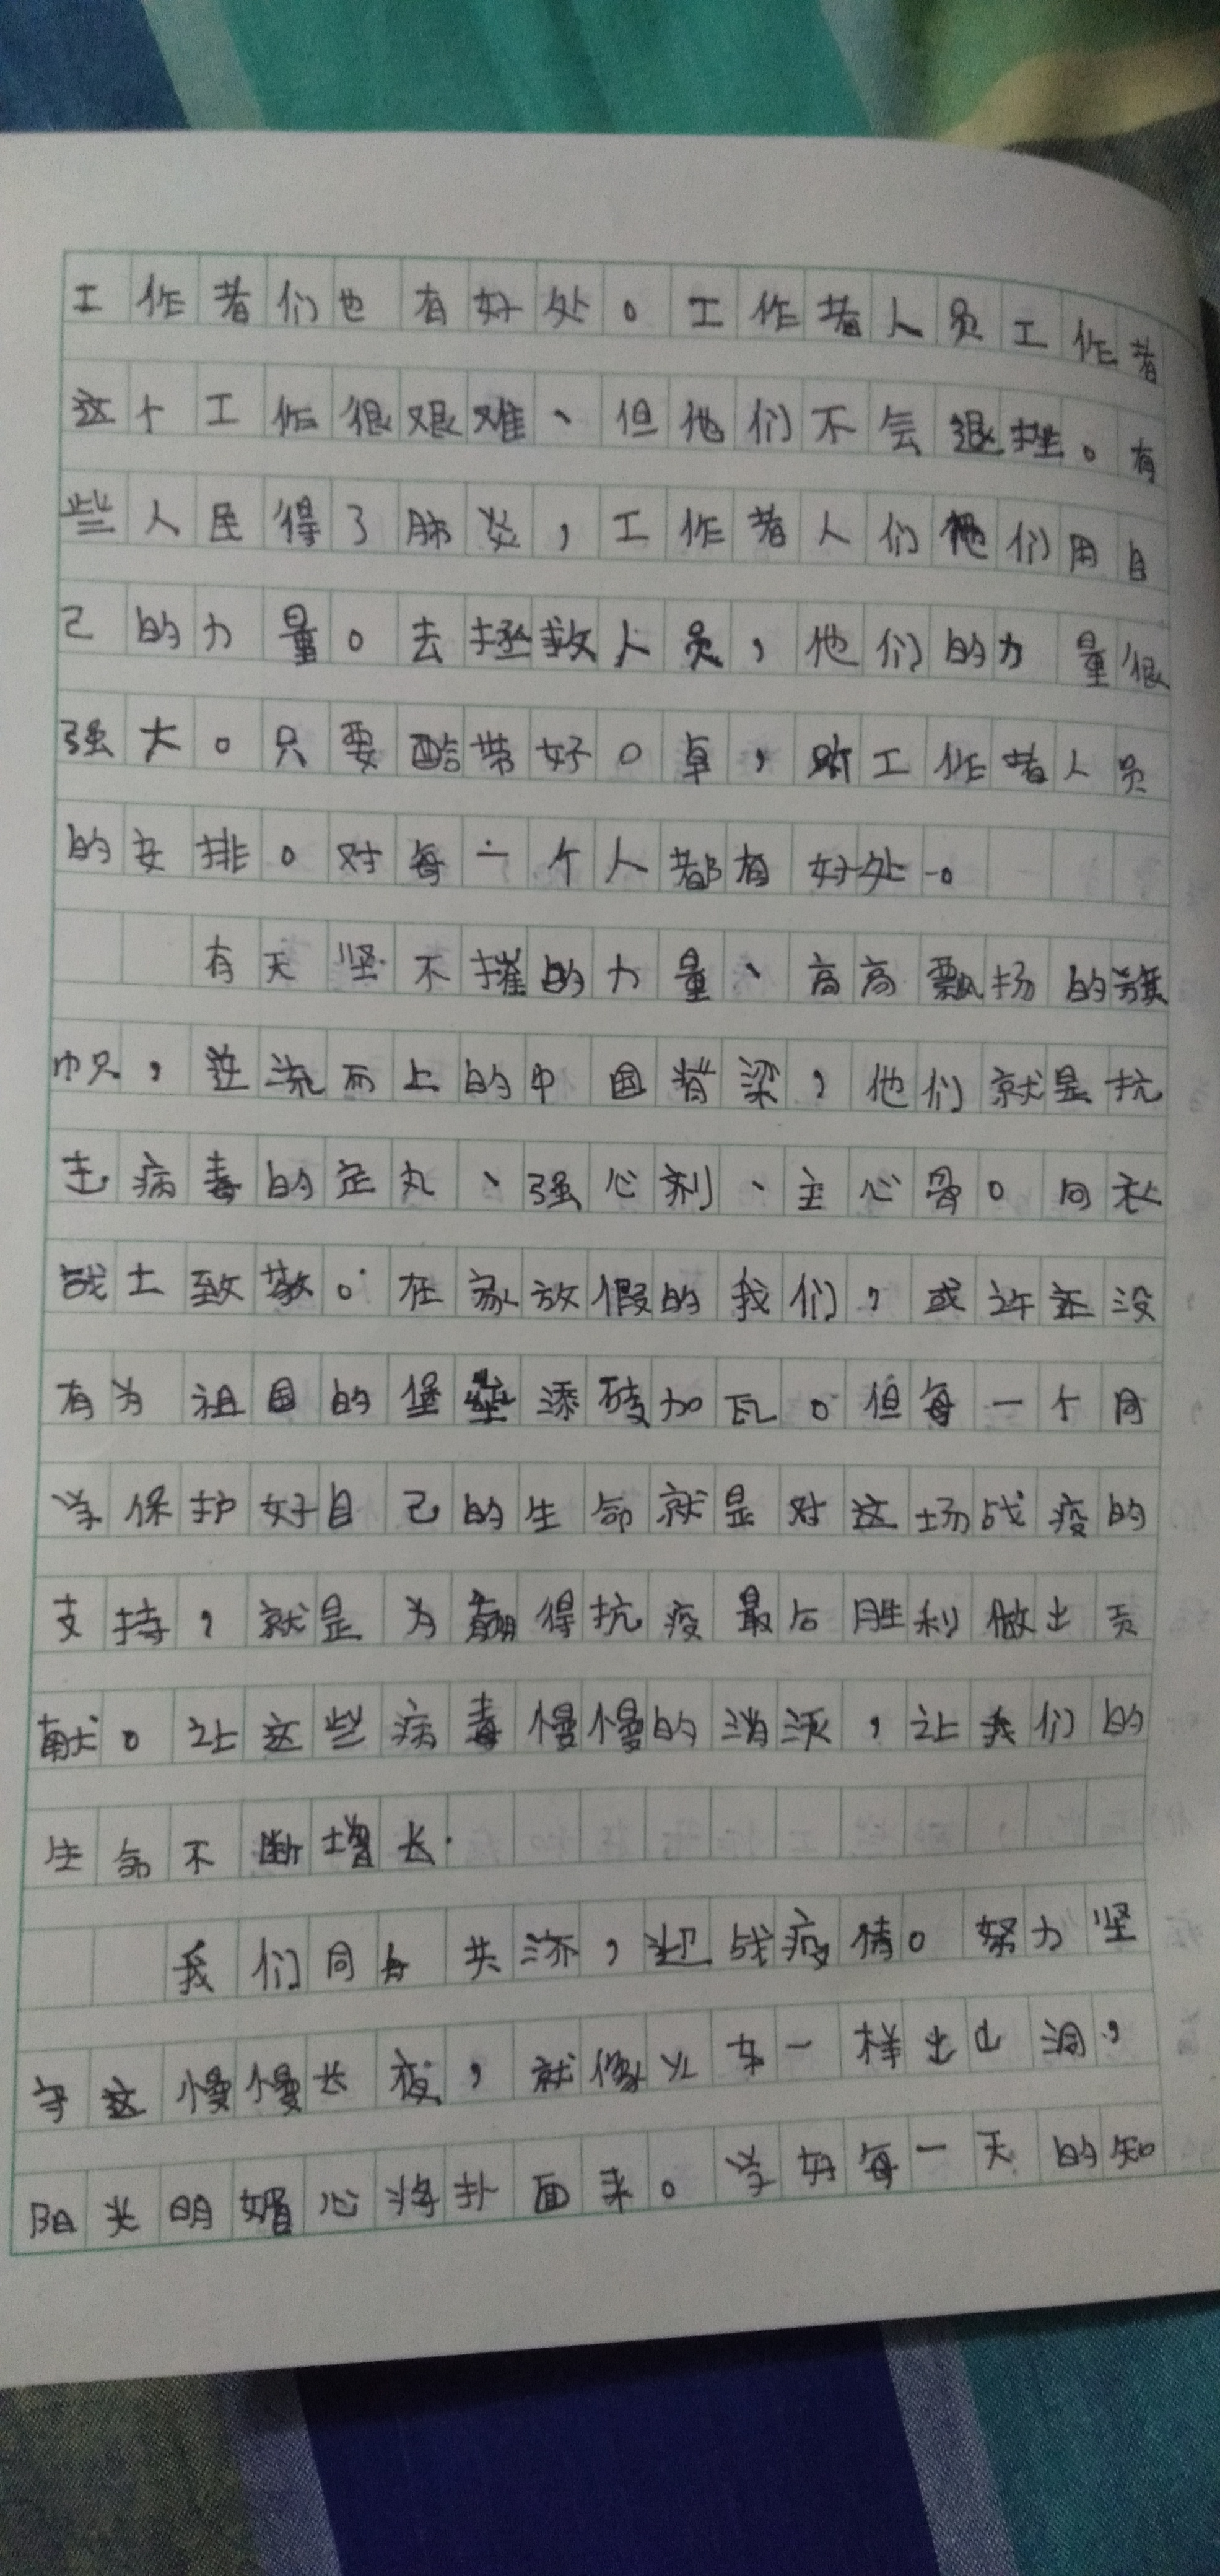 工作者们也有好处。工作者人员工作者
这个工作很艰难、但他们不会退挫。有
些人民得了肺炎，工作者人们他们用自
己的力量。去拯救人员，他们的力量很
强大。只要配带好口卓，听工作者人员
的安排。对每一个人都有好处。
有天坚不摧的力量、高高飘扬的旗
帜，逆流而上的中国脊梁，他们就是抗
击病毒的定丸、强心剂、主心骨。向
战士致敬。在家放假的我们，或许还没
有为祖国的堡垒添砖加瓦。但每一个同
学保护好自己的生命就是对这场战疫的
支持，就是为赢得抗疫最后胜利做出贡
献。让这些病毒慢慢的消灭，让我们的
生命不断增长.
我们同舟共济，迎战疫情。努力坚
守这慢慢长夜，就像火车一样出山洞，
阳光明媚心将扑面来。学好每一天的知